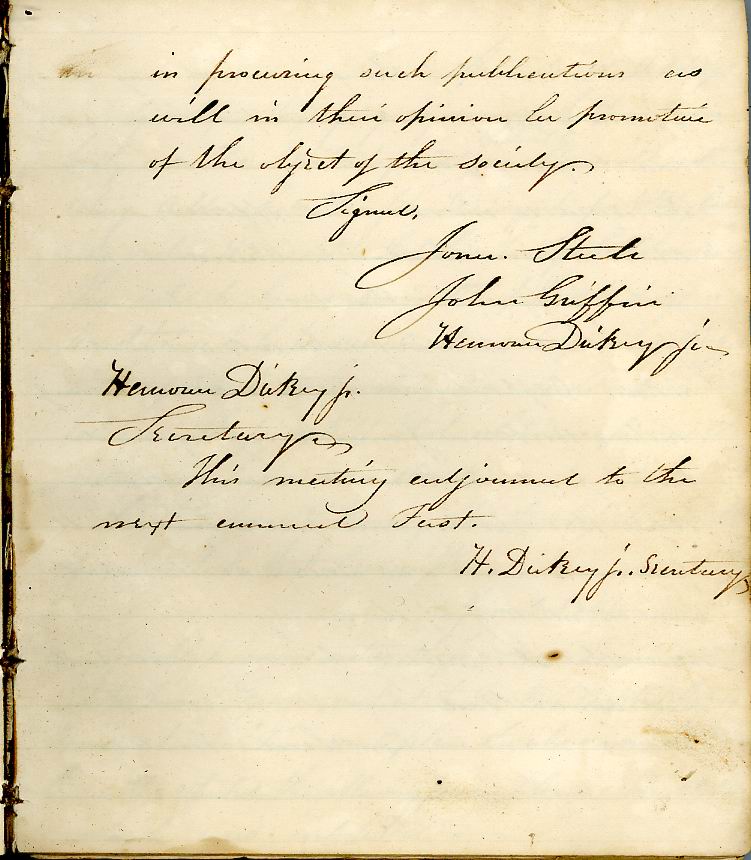 in procuring such publications as
will in their opinion be promotive
of the object of the society.
Signed.
Steele
John Griffin
Dickey jr
Dickey jr.
Secretary
This meeting adjourned to the
next annual Fast.
H. Dickey jr. Secretary